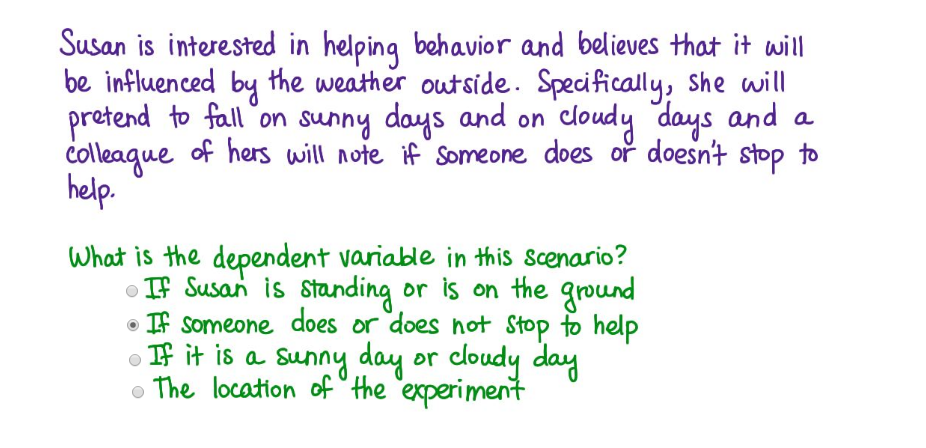 Susan is interested in helping behavior and believes that it will
be influenced by the weather outside. Specifically, she will
pretend to fall on sunny days and on cloudy days and a
colleague of hers will note if someone does or doesn't stop to
help.
What is the dependent variable in this scenario?
If Susan is standing or is on the ground
If someone does or does not stop to help
If it is a sunny day or cloudy day
The location of the experiment